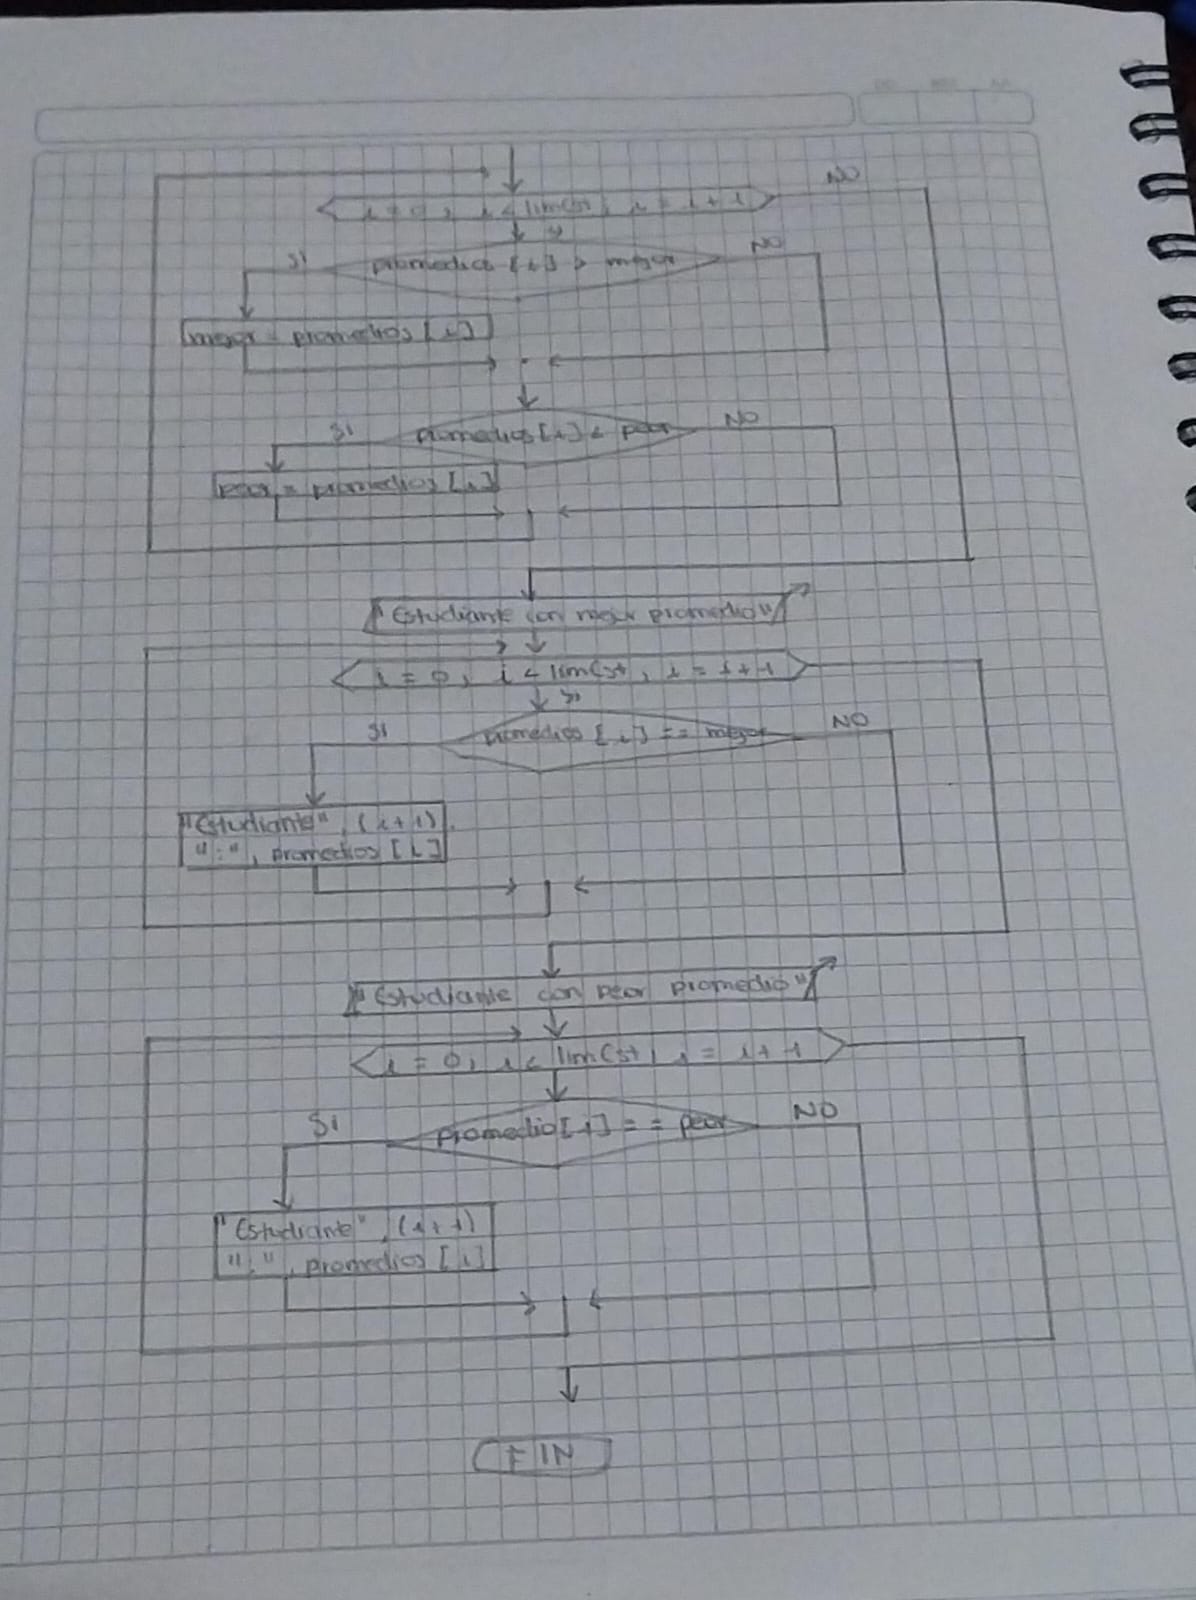 NO
i = 0, i < limEst, i = i + 1
SI
SI promedios [i] > mejor NO
mejor = promedios [i]
SI promedios [i] < peor NO
peor = promedios [i]
"Estudiante con mejor promedio"
i = 0, i < limEst, i = i + 1
SI
SI promedios [i] == mejor NO
"Estudiante", (i+1),
":", promedios [i]
"Estudiante con peor promedio"
i = 0, i < limEst, i = i + 1
SI promedio[i] == peor NO
"Estudiante", (i+1)
":", promedios [i]
FIN